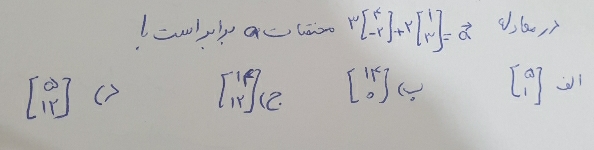 در معادله ۳[۴ -۲]+۲[۱ ۳]=a⃗ مختصات a برابر است با!
الف [۵ ۱] ب) [۱۴ ۰] ج) [۱۴ ۱۲] د) [۵ ۱۲]